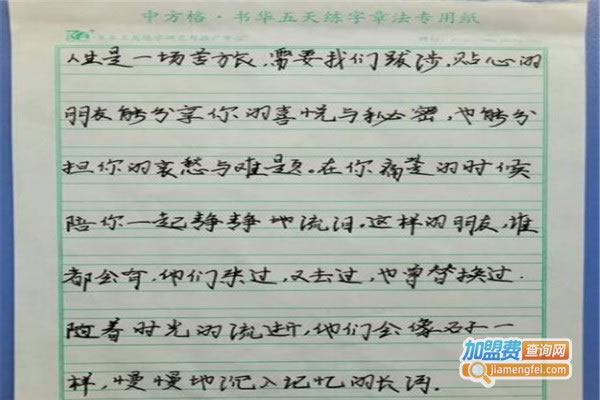 中方格·书华五天练字章法专用纸
人生是一场苦旅,需要我们跋涉.贴心的
朋友能分享你的喜悦与秘密,也能分
担你的哀愁与难题。在你痛楚的时候
陪你一起静静地流泪.这样的朋友,谁
都会有,他们来过,又去过,也曾替换过.
随着时光的流逝,他们会像石子一
样,慢慢地沉入记忆的长河.
加盟费查询网
jiamengfei.com